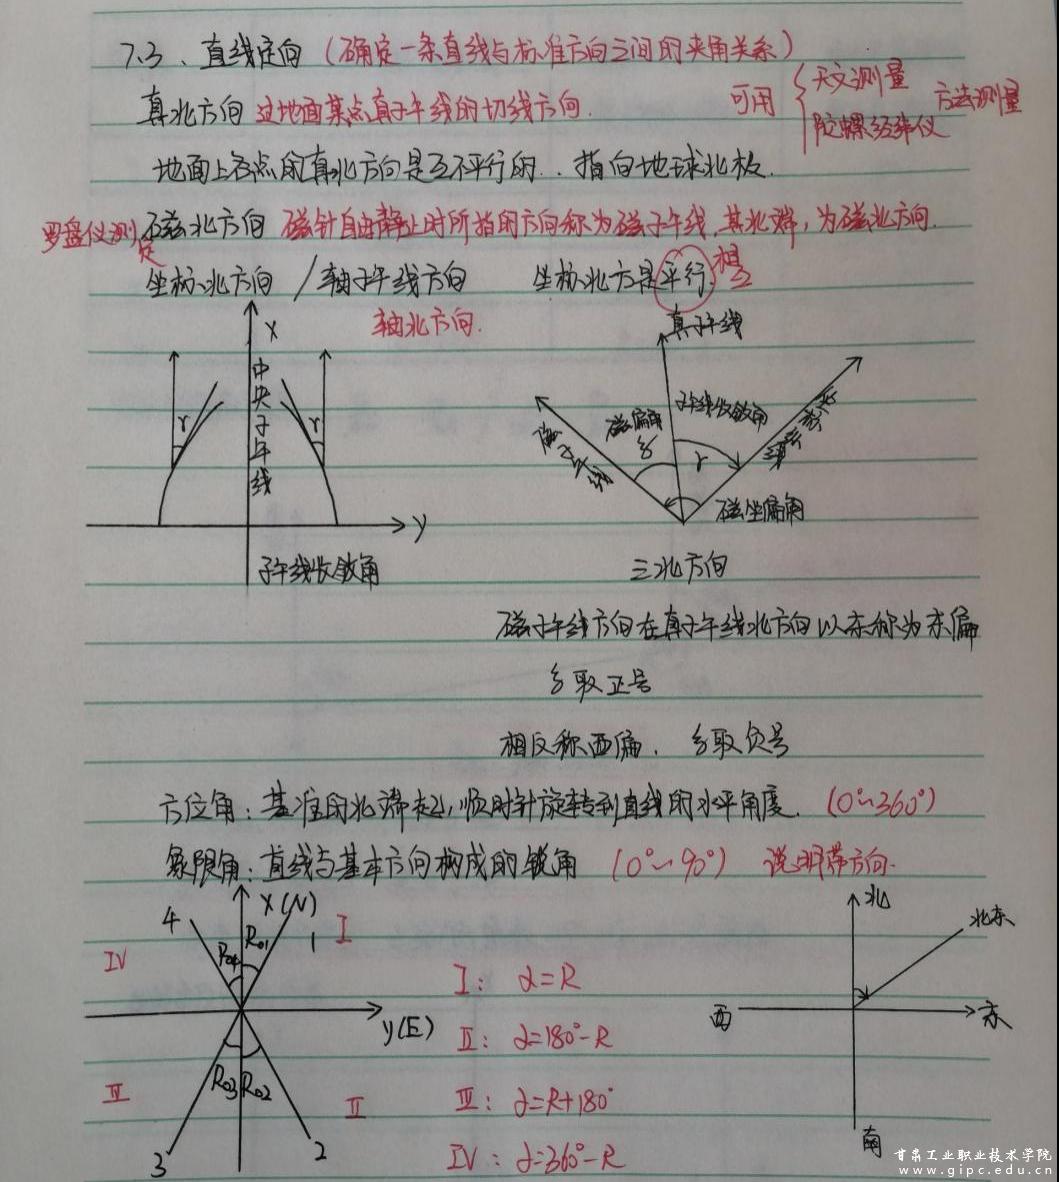 7.3、直线定向（确定一条直线与标准方向之间的夹角关系）
真北方向 过地面某点真子午线的切线方向. 可用 { 天文测量 陀螺经纬仪 方法测量
地面上各点的真北方向是互不平行的..指向地球北极.
罗盘仪测定 磁北方向 磁针自由静止时所指的方向称为磁子午线,其北端,为磁北方向.
坐标北方向 / 轴子午线方向 坐标北方是平行. 相互
轴北方向.
X
中央子午线
γ
γ
y
子午线收敛角
真子午线
磁子午线
磁偏角
δ
子午线收敛角
γ
磁坐偏角
三北方向
磁子午线方向在真子午线北方向以东称为东偏
δ取正号
相反称西偏. δ取负号
方位角:基准的北端起,顺时针旋转到直线的水平角度. (0°~360°)
象限角:直线与基本方向构成的锐角 (0°~90°) 说明带方向.
4
X(N)
1
I
IV
R04
R01
y(E)
III
R03
R02
II
3
2
I: α=R
II: α=180°-R
III: α=R+180°
IV: α=360°-R
北
北东
西
东
南
甘肃工业职业技术学院
www.gipc.edu.cn